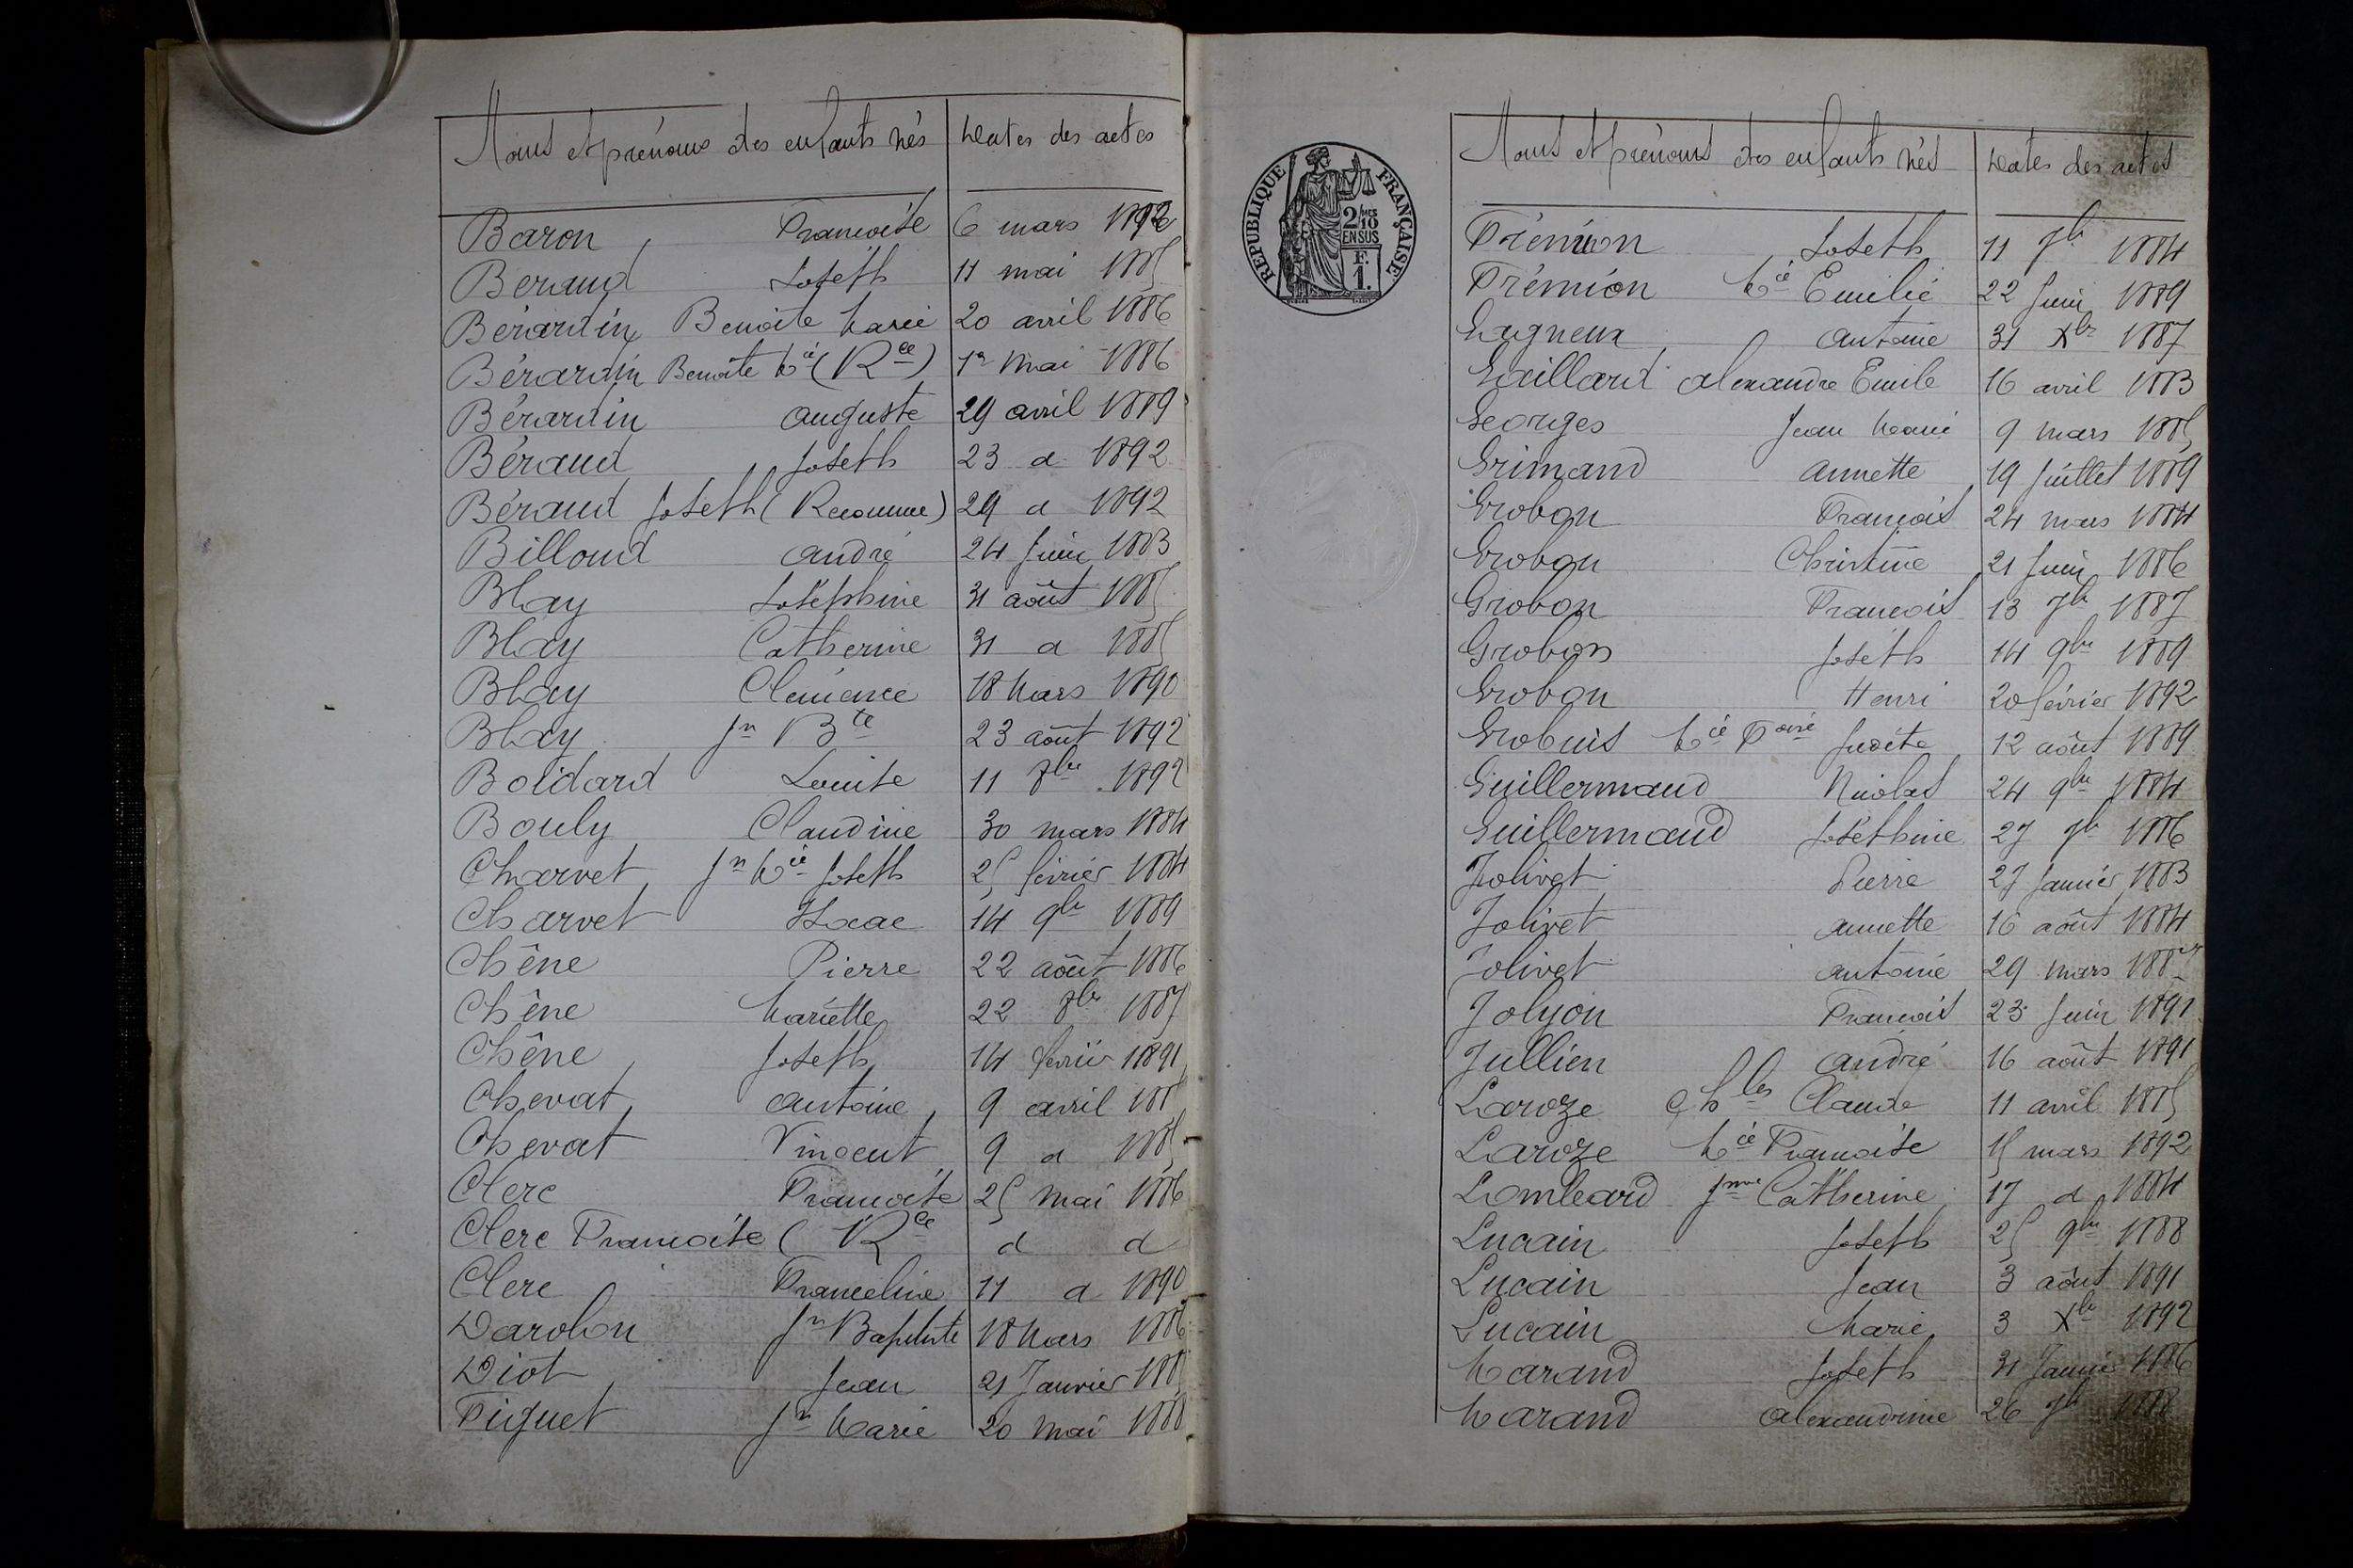 Noms et prénoms des enfants nés | Dates des actes
Baron Francoise 6 mars 1892
Beraud Joseph 11 mai 1885
Bérardin Benoite Marie 20 avril 1886
Bérardin Benoite Mie (Rce) 1er Mai 1886
Bérardin auguste 29 avril 1889
Béraud Joseph 23 d 1892
Béraud Joseph (Reconnue) 29 d 1892
Billoud andré 24 Juin 1883
Blay Joséphine 31 août 1885
Blay Catherine 31 d 1885
Blay Clémence 18 Mars 1890
Blay Jn Bte 23 août 1892
Boidard Louise 11 8bre 1892
Bouly Claudine 30 mars 1884
Charvet Jn Mie Joseph 25 février 1884
Charvet Isaac 14 9bre 1889
Chêne Pierre 22 août 1886
Chêne Mariette 22 8bre 1887
Chêne Joseph 14 février 1891
Chevat antoine 9 avril 1885
Chevat Vincent 9 d 1885
Clerc Francoise 25 Mai 1886
Clerc Francoise (Rce d d
Clerc Franceline 11 d 1890
Darobon Jn Baptiste 18 Mars 1886
Diot Jean 21 Janvier 1885
Fiquet Jn Marie 20 Mai 1888
REPUBLIQUE FRANÇAISE
2/MES
10
EN SUS
F.
1.
Noms et prénoms des enfants nés | Dates des actes
Frémion Joseph 11 7bre 1884
Frémion Mie Emilie 22 Juin 1889
Gagneux antoine 31 Xbre 1887
Gaillard alexandre Emile 16 avril 1883
Georges Jean Marie 9 mars 1885
Grimand annette 19 Juillet 1889
Grobon Francois 24 mars 1884
Grobon Christine 21 Juin 1886
Grobon Francois 13 7bre 1887
Grobon Joseph 14 9bre 1889
Grobon Henri 20 février 1892
Mie 12 août 1889
Guillermaud Nicolas 24 9bre 1884
Guillermaud Joséphine 27 9bre 1886
Jolivet Pierre 27 Janvier 1883
Jolivet annette 16 août 1884
Jolivet antoine 29 mars 1887
Jolyon Francois 23 Juin 1891
Jullien andré 16 août 1891
Laroze Chles Claude 11 avril 1885
Laroze Mie Francoise 15 mars 1892
Lombard Jnne Catherine 17 d 1884
Lucain Joseph 25 9bre 1888
Lucain Jean 3 août 1891
Lucain Marie 3 Xbre 1892
Marand Joseph 31 Janvier 1886
Marand alexandrine 26 7bre 1888